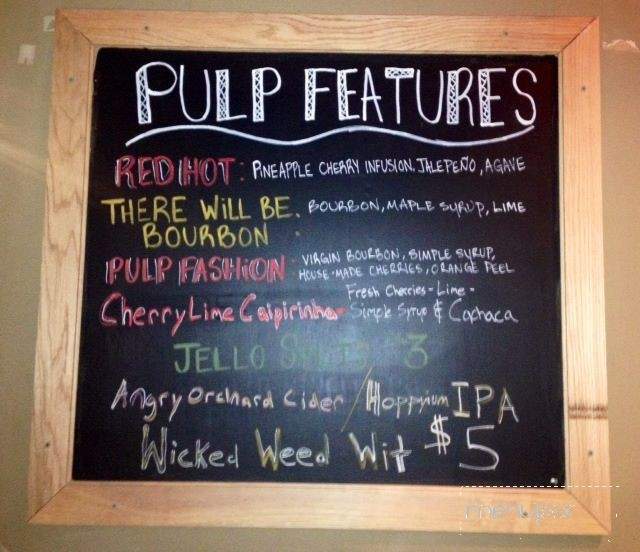 PULP FEATURES
RED HOT: PINEAPPLE CHERRY INFUSION, JALEPEÑO, AGAVE
THERE WILL BE BOURBON, MAPLE SYRUP, LIME
BOURBON
PULP FASHION VIRGIN BOURBON, SIMPLE SYRUP,
HOUSE-MADE CHERRIES, ORANGE PEEL
Fresh Cherries - Lime -
Cherry Lime Caipirinha - Simple Syrup & Cachaca
JELLO SHOTS $3
Angry Orchard Cider / Hoppyum IPA
Wicked Weed Wit $5